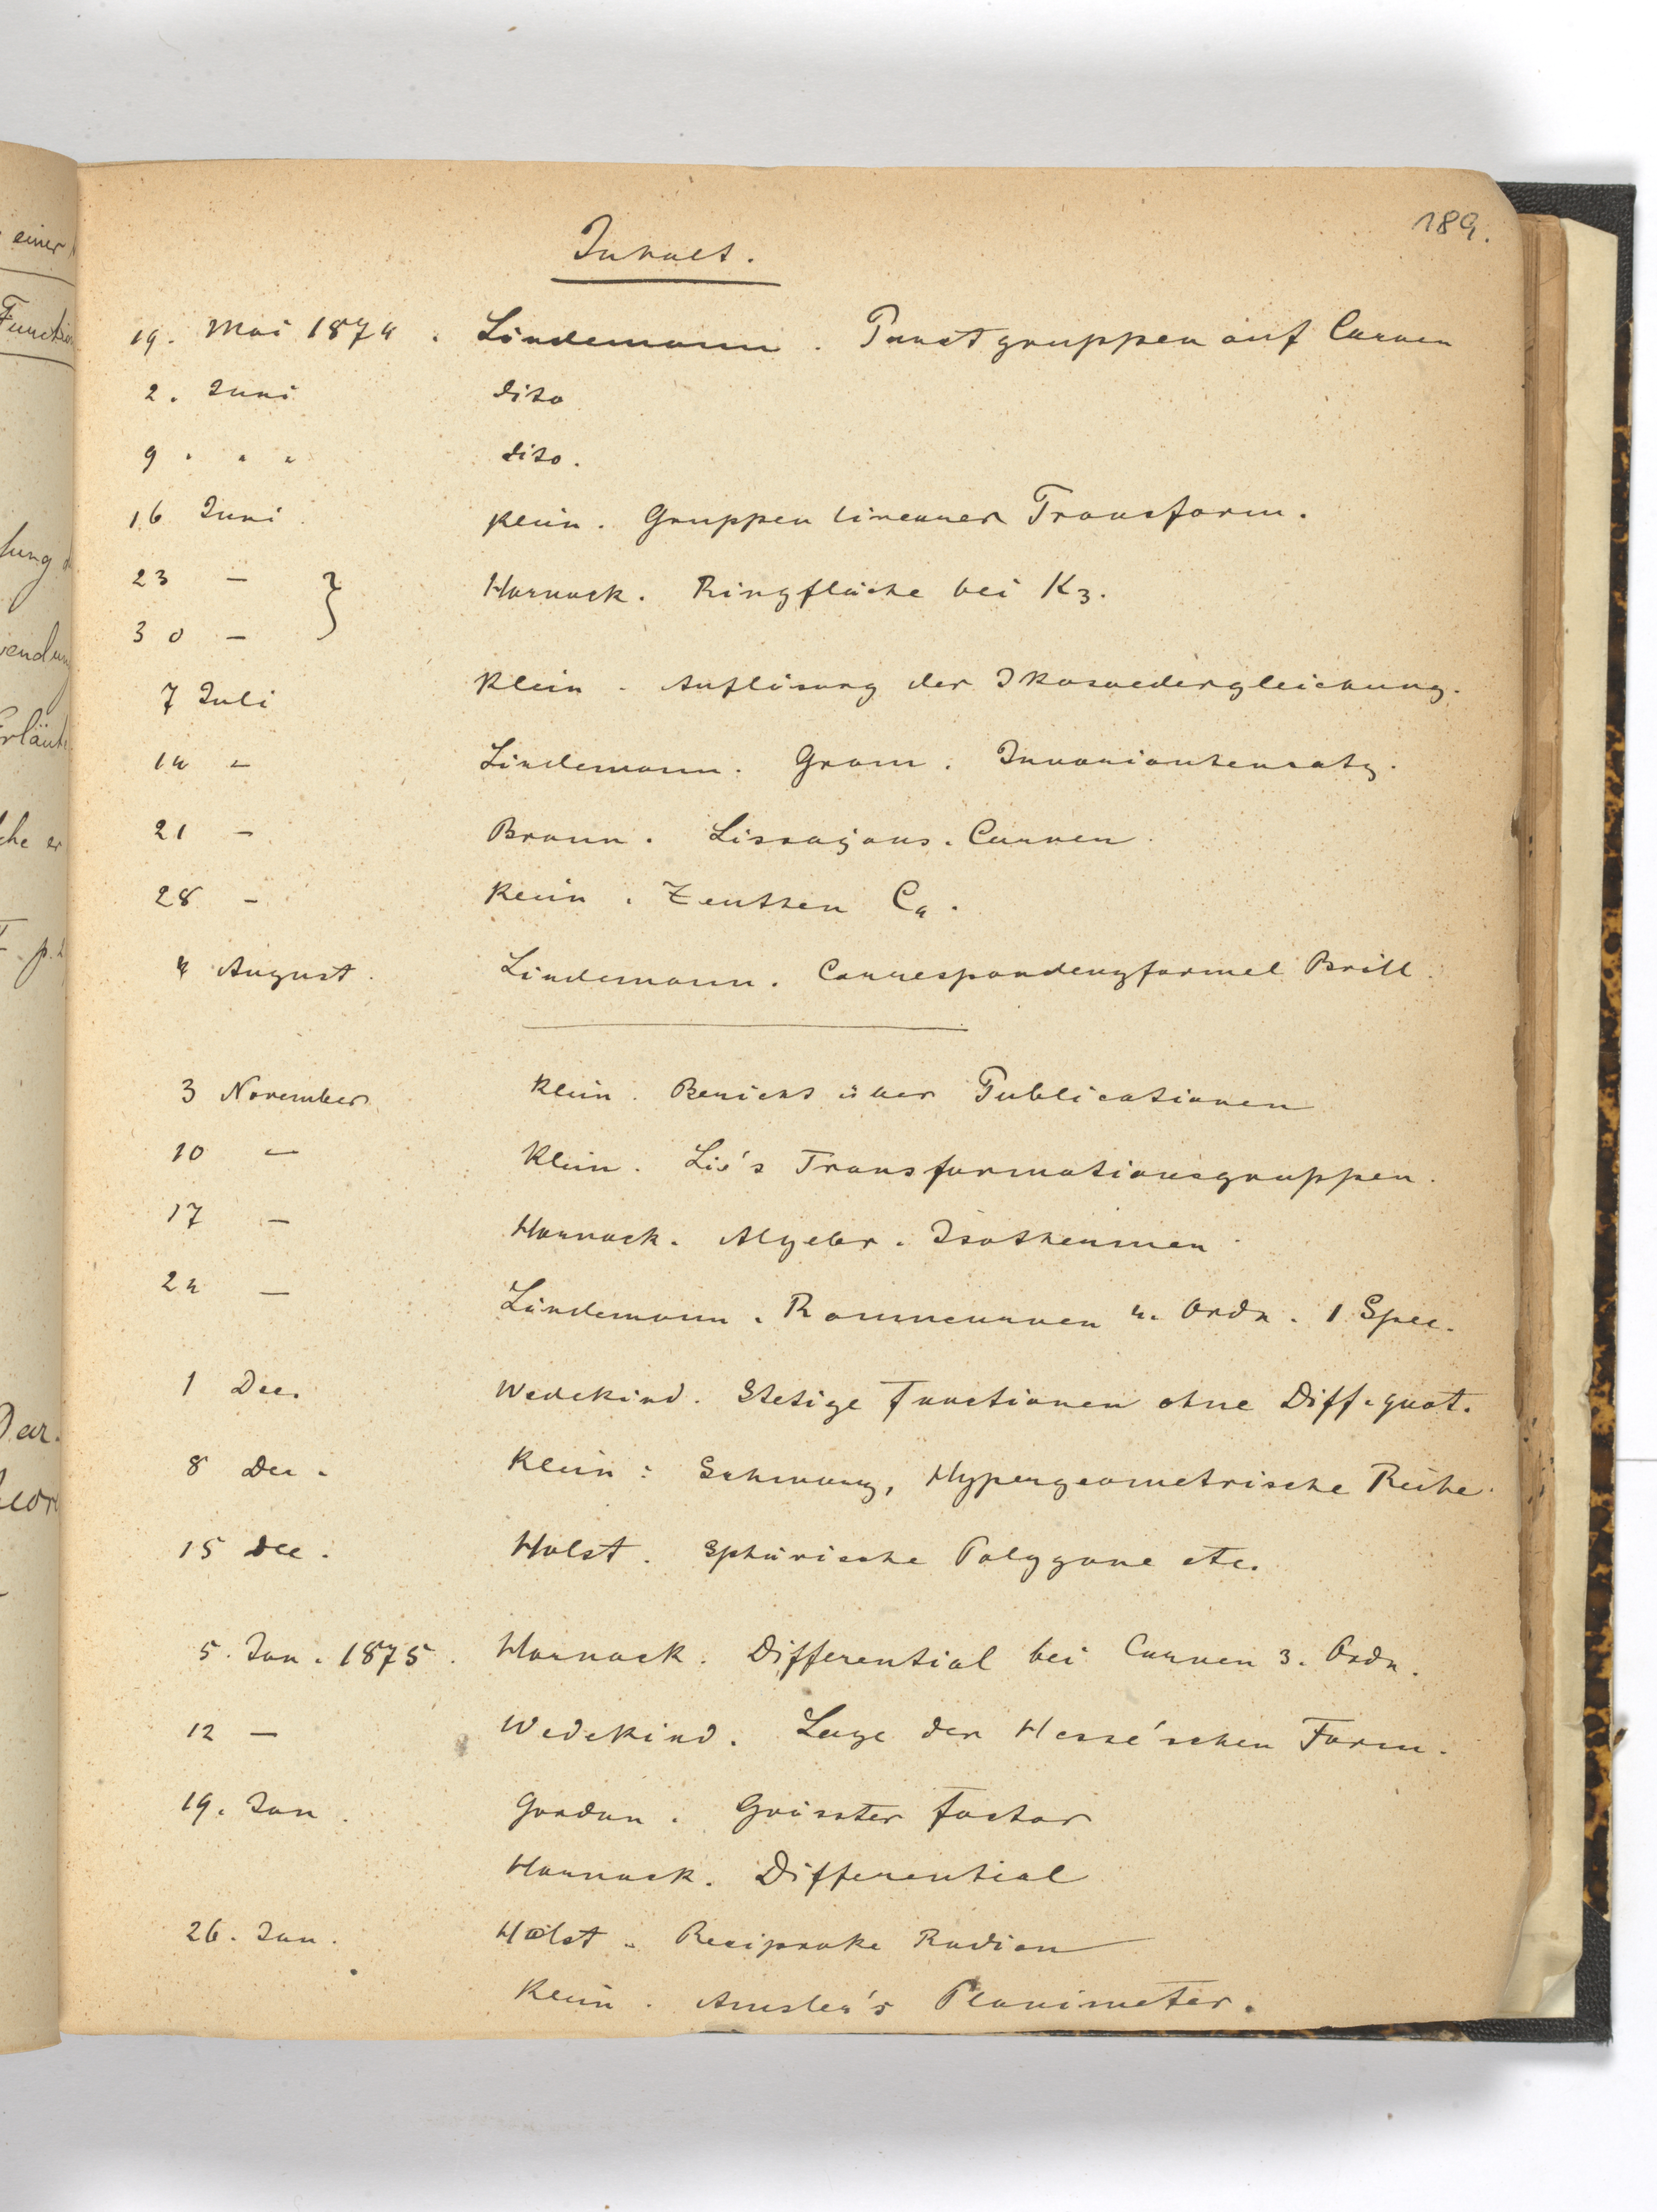 189.
Inhalt.
19. Mai 1874. Lindemann. Punctgruppen auf Curven
2. Juni dito
9 " " dito.
16 Juni Klein. Gruppen linearer Transform.
23 — } Harnack. Ringfläche bei K3.
30 —
7 Juli Klein. Auflösung der Ikosaedergleichung.
14 — Lindemann. Gram. Invariantensatz.
21 — Braun. Lissajous. Curven
28 — Klein. Zeuthen C4.
4 August. Lindemann. Correspondenzformel Brill.
3 November Klein. Bericht über Publicationen
10 — Klein. Lie's Transformationsgruppen.
17 — Harnack. Algebr. Isothermen
24 — Lindemann. Raumcurven 4. Ordn. 1 Spec.
1 Dec. Wedekind. Stetige Functionen ohne Diff. quot.
8 Dec. Klein: Schwarz, Hypergeometrische Reihe.
15 Dec. Holst. Sphärische Polygone etc.
5. Jan. 1875. Harnack. Differential bei Curven 3. Ordn.
12 — Wedekind. Lage der Hesse'schen Form.
19. Jan. Gordan. Grösster Factor
Harnack. Differential
26. Jan. Holst. Reciproke Radien
Klein. Amsler's Planimeter.